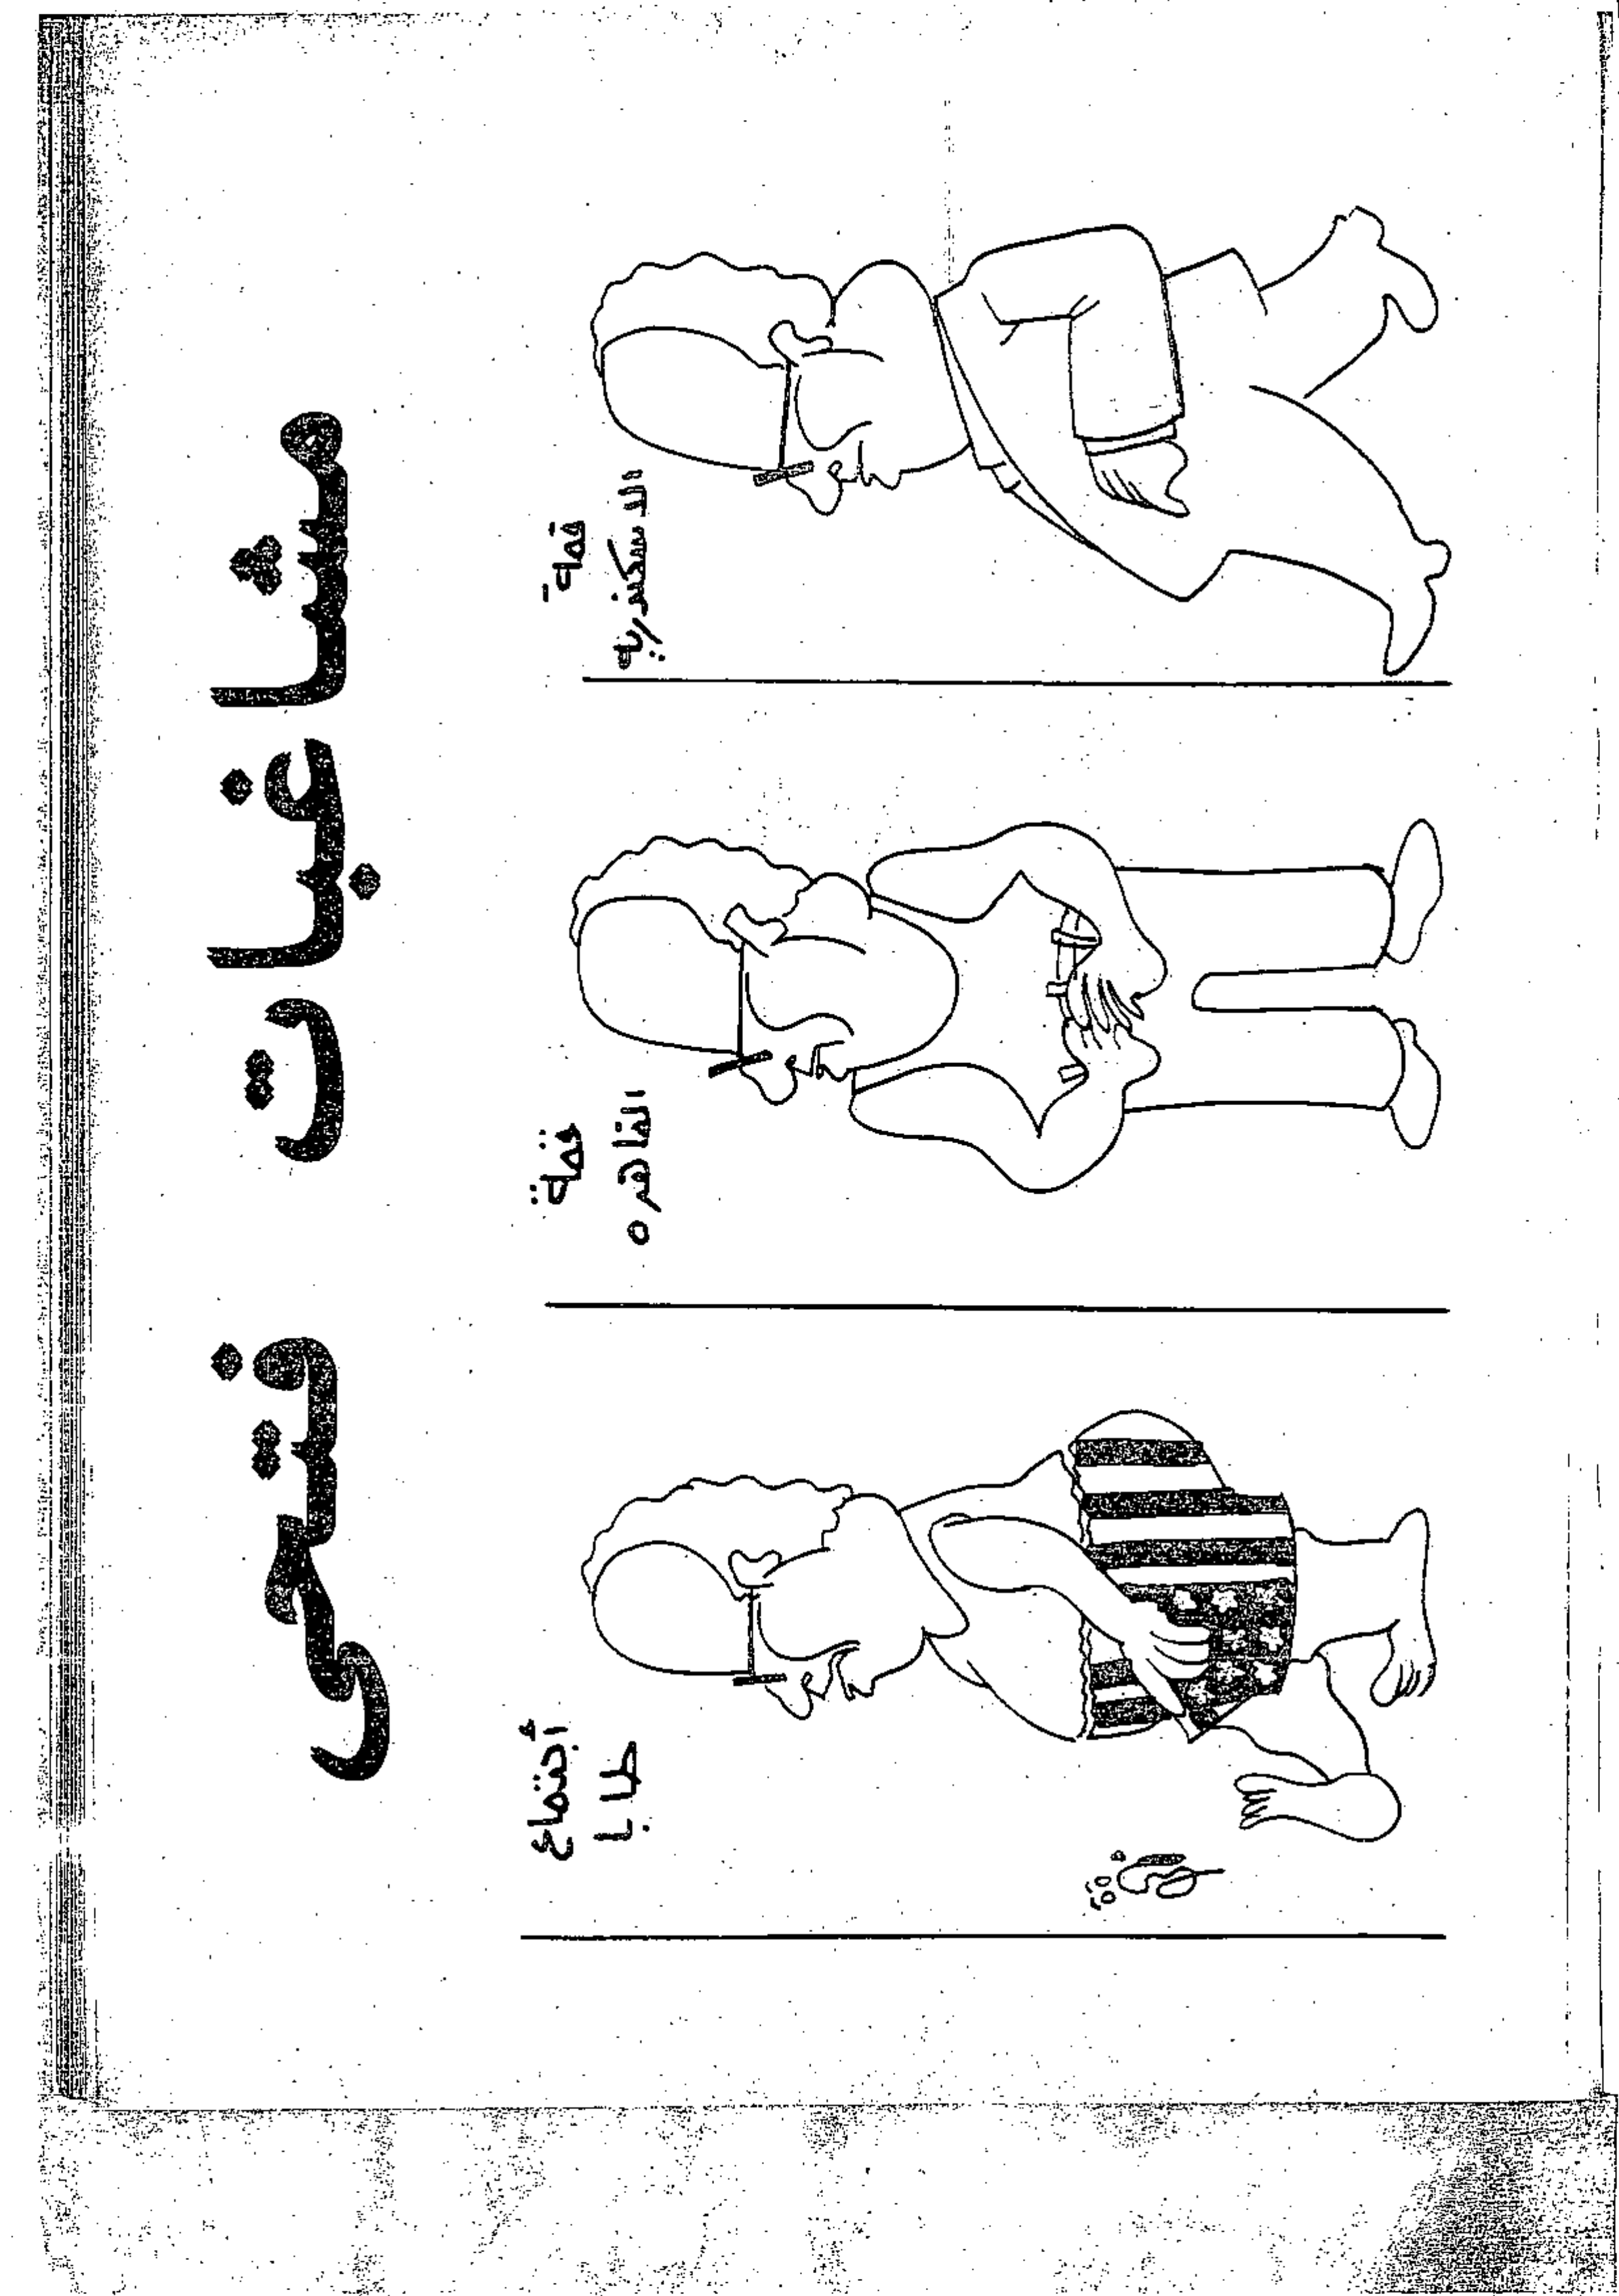 مشاغبات فتحى
قمة
الاسكندرية
قمة
القاهره
أجتماع
طابا